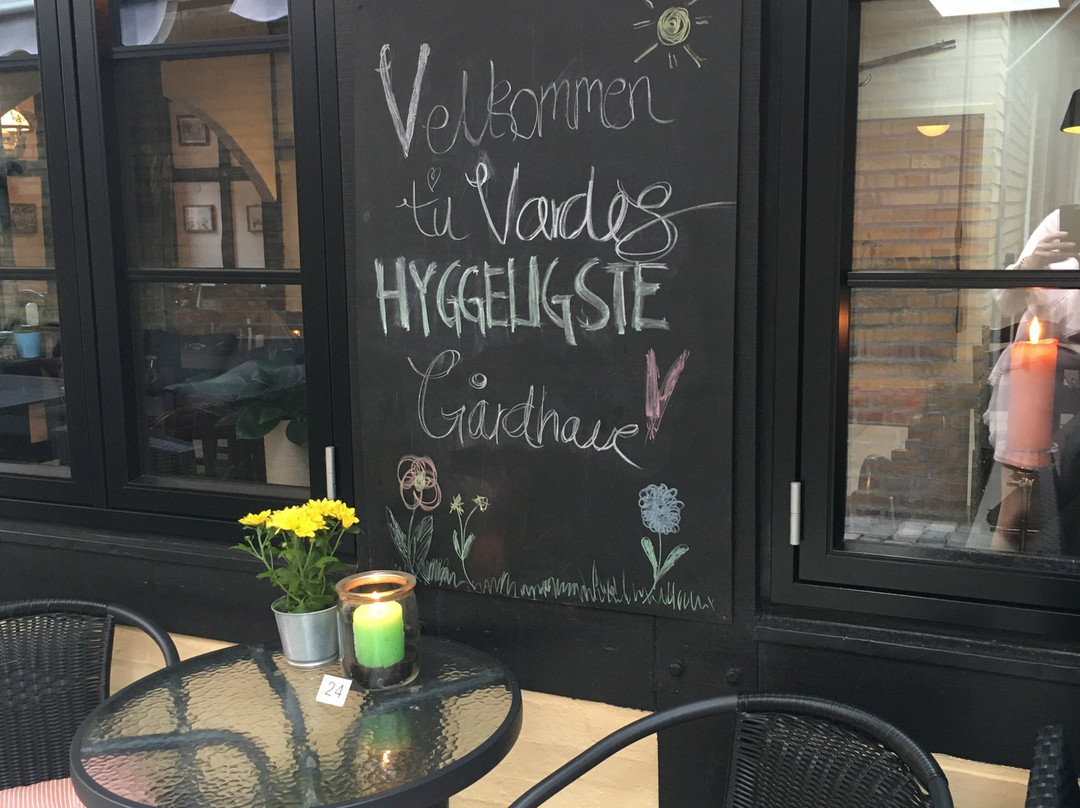 Velkommen
til Vardes
HYGGELIGSTE
Gårdhave
24